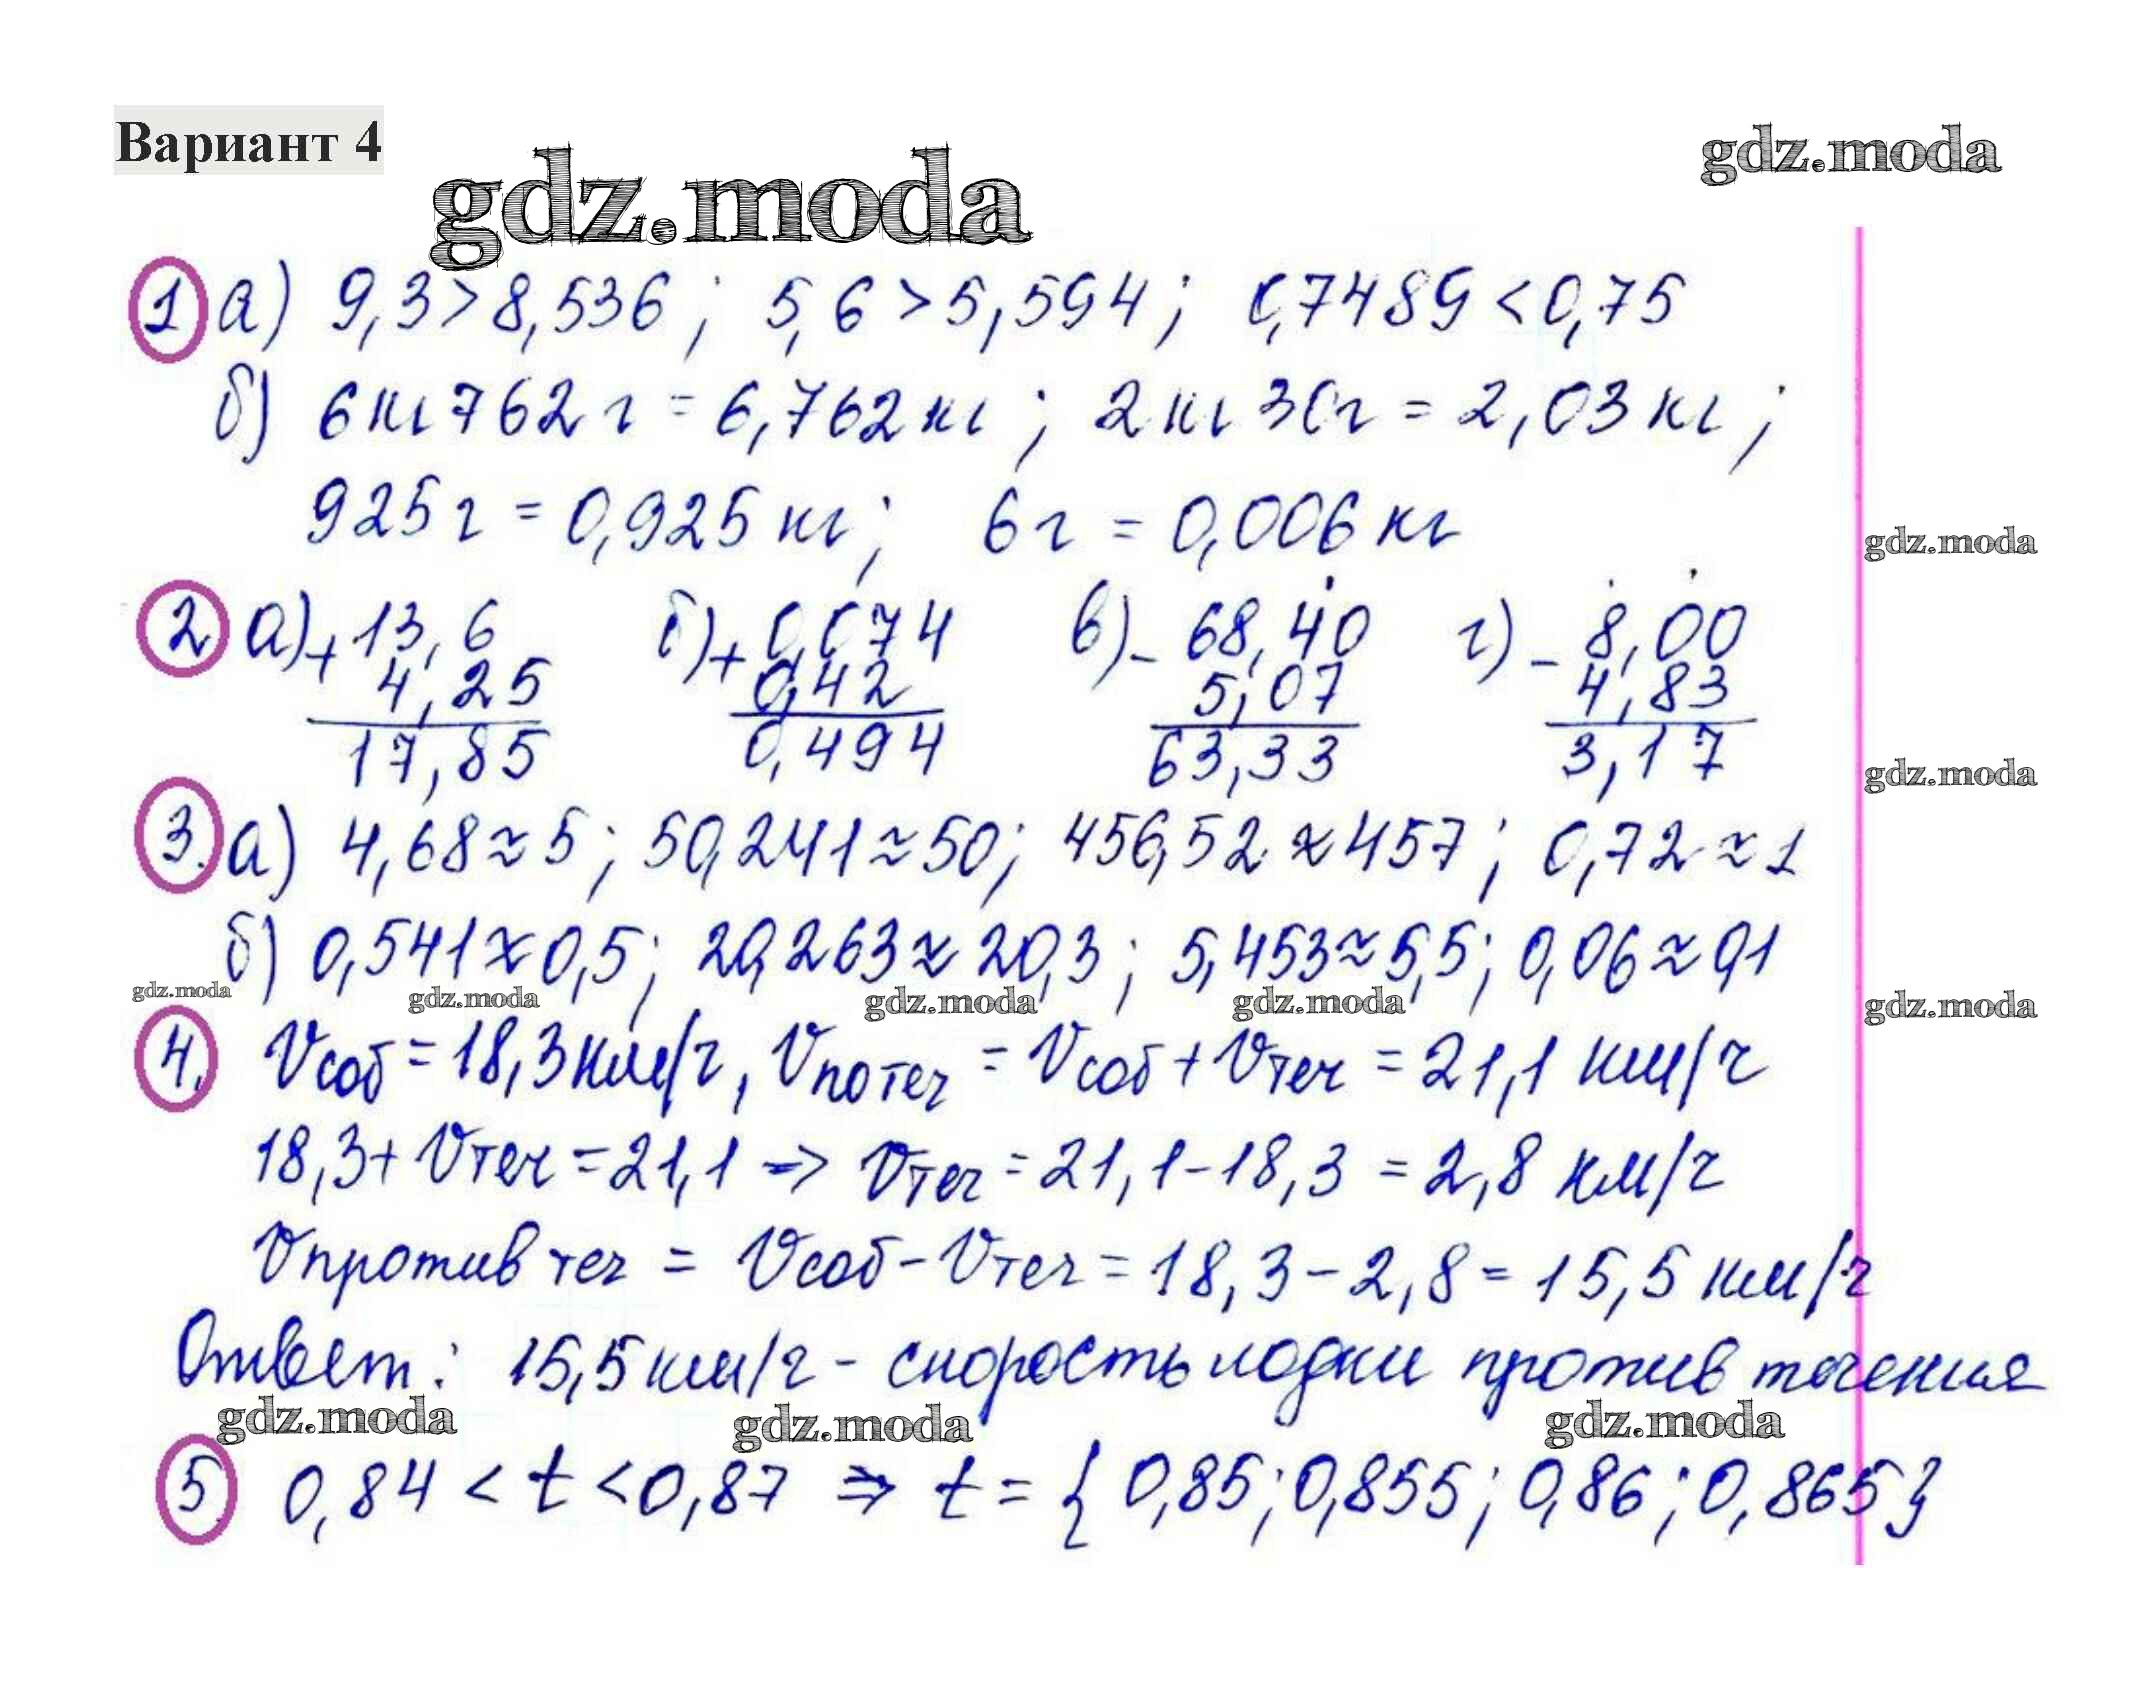 Вариант 4
gdz.moda
gdz.moda
1 а) 9,3>8,536; 5,6>5,594; 0,7489<0,75
б) 6кг 762 г = 6,762 кг; 2 кг 30г = 2,03 кг;
925 г = 0,925 кг; 6 г = 0,006 кг
gdz.moda
2 а) + 13,6 б) + 0,074 в) - 68,40 г) - 8,00
4,25 0,42 5,07 4,83
17,85 0,494 63,33 3,17
gdz.moda
3. а) 4,68≈5; 50,241≈50; 456,52≈457; 0,72≈1
б) 0,541≈0,5; 20,263≈20,3; 5,453≈5,5; 0,06≈0,1
gdz.moda gdz.moda gdz.moda gdz.moda gdz.moda
4. Vсоб = 18,3 км/ч, Vпо теч = Vсоб + Vтеч = 21,1 км/ч
18,3 + Vтеч = 21,1 => Vтеч = 21,1 - 18,3 = 2,8 км/ч
Vпротив теч = Vсоб - Vтеч = 18,3 - 2,8 = 15,5 км/ч
Ответ: 15,5 км/ч - скорость лодки против течения
gdz.moda gdz.moda gdz.moda
5 0,84 < t < 0,87 => t = { 0,85; 0,855; 0,86; 0,865}